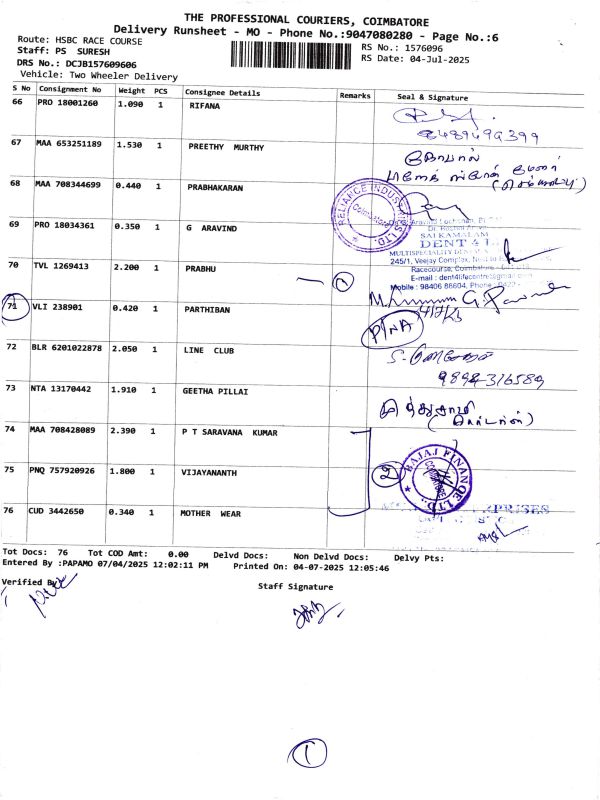 THE PROFESSIONAL COURIERS, COIMBATORE
Delivery Runsheet - MO - Phone No.:9047080280 - Page No.:6
Route: HSBC RACE COURSE
Staff: PS SURESH
DRS No.: DCJB157609606
Vehicle: Two Wheeler Delivery
RS No.: 1576096
RS Date: 04-Jul-2025
S No Consignment No Weight PCS Consignee Details Remarks Seal & Signature
66 PRO 18001260 1.090 1 RIFANA
8489499399
67 MAA 653251189 1.530 1 PREETHY MURTHY
68 MAA 708344699 0.440 1 PRABHAKARAN
RELIANCE INDUSTRIES LTD.
Coimbatore
69 PRO 18034361 0.350 1 G ARAVIND
SAI KAMALAM
DENT 4 L
245/1, Veejay Complex,
Racecourse, Coimbatore
E-mail : dent4lifecentre@gmail.com
Mobile : 98406 86604, Phone : 0422
70 TVL 1269413 2.200 1 PRABHU
71 VLI 238901 0.420 1 PARTHIBAN
P/NA
72 BLR 6201022878 2.050 1 LINE CLUB
9894316589
73 NTA 13170442 1.910 1 GEETHA PILLAI
74 MAA 708428089 2.390 1 P T SARAVANA KUMAR
75 PNQ 757920926 1.800 1 VIJAYANANTH
2
BAJAJ FINANCE LTD.
COIMBATORE
76 CUD 3442650 0.340 1 MOTHER WEAR
Tot Docs: 76 Tot COD Amt: 0.00 Delvd Docs: Non Delvd Docs: Delvy Pts:
Entered By :PAPAMO 07/04/2025 12:02:11 PM Printed On: 04-07-2025 12:05:46
Verified By
Staff Signature
1